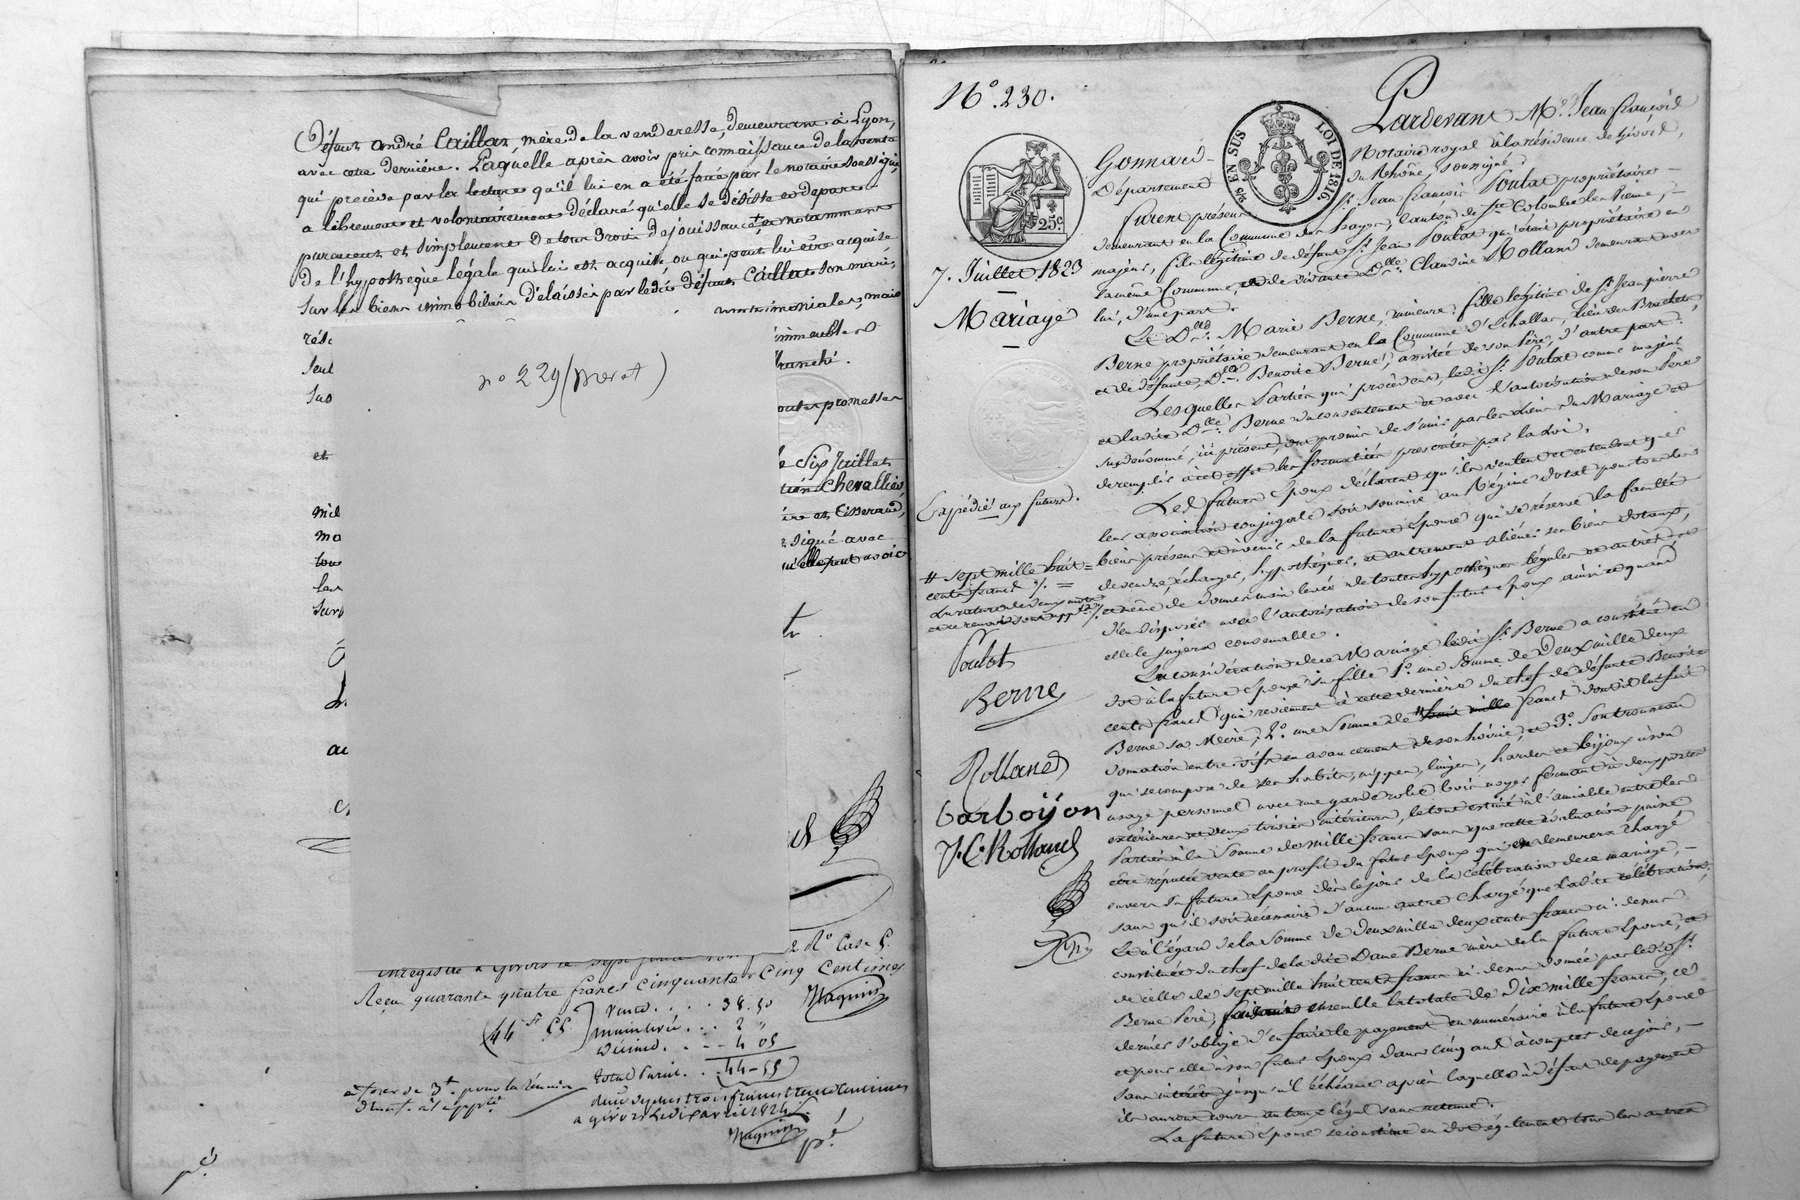 Défunt andré Caillat, mère de la venderesse, demeurant à Lyon,
avec cette dernière. Laquelle après avoir pris connaissance de la vente
qui précède par la lecture qu'il lui en a été faite par le notaire soussigné,
a librement et volontairement déclaré qu'elle se désiste et départ
purement et simplement de tous droits de jouissance et notamment
De l'hypothèque légale qui lui est acquise ou qui peut lui être acquise
Sur les biens immobiliers délaissés par ledit défunt Caillat son mari,
matrimoniales, mais
immeubles
Seul franchi.
toutes promesses
et le Six Juillet
mil Chevallier
et Tisserand,
signé avec
tous qu'elle peut avoir
n° 229 (Meret)
2 R° Case 5.
Enregistré à Givors le sept
Reçu quarante quatre francs cinquante cinq centimes
Magnin
(44 fr 55
Vente . . . 38.50
mainlevée . . . 2 "
Décime . . . 4 05
total Pareil . . . 44-55
a givors le dix avril 1824
Magnin
N°. 230.
25c.
7. Juillet 1823
Mariage
Expédié aux futurs.
# sept mille huit
cents francs ./. =
Poulat
Berne
Rolland
barboijon
J. C. Rolland
EN SUS LOI DE 1816
Pardevant Me. Jean françois
Gonnard Notaire royal à la résidence de Givors,
Département du Rhône, soussigné.
furent présens Sr. Jean françois Poulat propriétaire
demeurant en la Commune des hayes, Canton de Ste Colombe les Vienne,
majeur, fils légitime de défunt Sr. Jean Poulat qui était propriétaire en
la même Commune, et de vivante Dlle. Claudine Rolland demeurant avec
lui, d'une part.
Et Dlle. Marie Berne, mineure, fille légitime de Sr. Jean pierre
Berne propriétaire demeurant en la Commune d'Echallas, lieu des Bruchets,
et de défunte Dlle. Benoite Berne, assistée de son Père, d'autre part.
Lesquelles Parties qui procèdent, ledit Sr. Poulat comme majeur
et ladite Dlle. Berne du consentement et avec l'autorisation de son Père
susdénommé, ici présent, ont promis de s'unir par les liens du Mariage et
de remplir à cet effet les formalités prescrites par la loi.
Les futurs Epoux déclarent qu'ils veulent et entendent que
leur association conjugale soit soumise au Régime dotal pour tous les
biens présens et à venir de la future Epouse qui se réserve la faculté
de vendre, échanger, hypothéquer, et autrement aliéner ses biens dotaux,
et même de donner main levée de toutes hypothèques légales et autres et
d'en disposer avec l'autorisation de son futur Epoux ainsi et quand
elle le jugera convenable.
En considération de ce Mariage ledit Sr. Berne a constitué en
dot à la future Epouse sa fille 1°. une Somme de Deux mille deux
cents francs qui reviennent à cette dernière du chef de défunte Benoite
Berne sa Mère, 2°. une Somme de # huit mille francs dont il lui fait
donation entre vifs en avancement de son hoirie, et 3°. Son trousseau
qui se compose de ses habits, nippes, linges, hardes et bijoux à son
usage personnel avec une garde robe bois noyer fermant à deux portes
extérieures et deux tiroirs intérieurs, le tout estimé à l'amiable entre les
Parties à la Somme de mille francs sans que cette estimation puisse
être réputée vente au profit du futur Epoux qui en demeurera chargé
envers la future Epouse dès le jour de la célébration de ce mariage,
sans qu'il soit nécessaire d'aucun autre chargé que ladite célébration;
Et à l'égard de la Somme de deux mille deux cents francs ci-dessus
constituée du chef de la dite Dame Berne mère de la future Epouse, et
de celle de sept mille huit cents francs ci-dessus donnée par ledit Sr.
Berne Père, faisant ensemble la totale de Dix mille francs, ce
dernier s'oblige d'en faire le payement en numéraire à la future Epouse
et pour elle à son futur Epoux dans cinq ans à compter de ce jour,
sans intérêts jusqu'à l'échéance après laquelle à défaut de payement
ils auront cours au taux légal sans retenue.
La future Epouse se constitue en dot également tous les autres